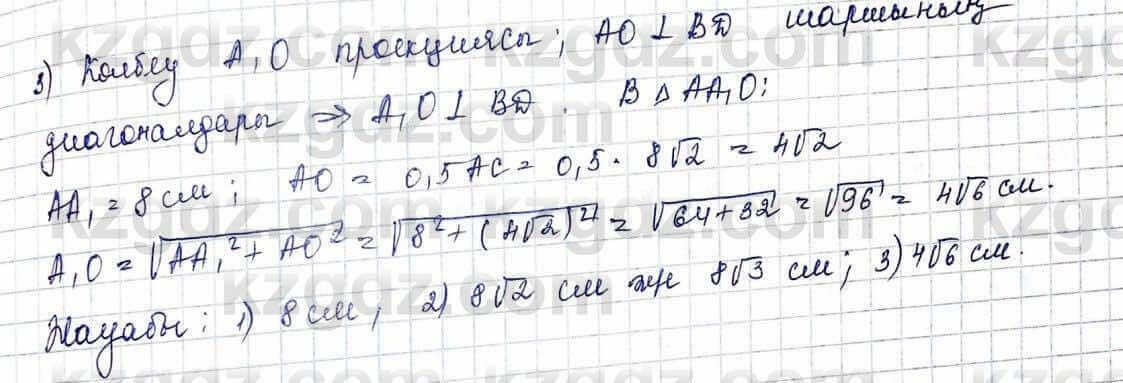 3) Колбеу A₁O проекциясы; AO ⊥ BD шаршының
диагоналдары ⇒ A₁O ⊥ BD. В △ AA₁O:
AA₁ = 8 см; AO = 0,5 AC = 0,5 · 8√2 = 4√2
A₁O = √AA₁² + AO² = √8² + (4√2)² = √64+32 = √96 = 4√6 см.
Жауабы: 1) 8 см; 2) 8√2 см же 8√3 см; 3) 4√6 см.